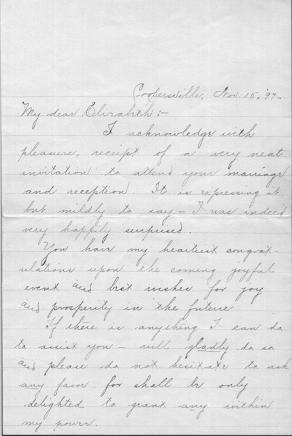 Coopersville, Nov. 15, '97-
My dear Elizabeth;-
I acknowledge with
pleasure, receipt of a very neat
invitation to attend your marriage
and reception. It is expressing it
but mildly to say - I was indeed
very happily surprised.
You have my heartiest congrat-
ulations upon the coming joyful
event and best wishes for joy
and prosperity in the future
If there is anything I can do
to assist you - will gladly do so
and please do not hesitate to ask
any favor for shall be only
delighted to grant any within
my power.